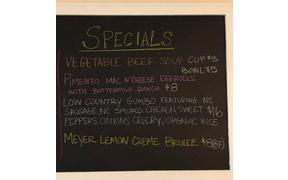 SPECIALS
VEGETABLE BEEF SOUP CUP $3
BOWL $5
PIMENTO MAC N' CHEESE EGGROLLS
WITH BUTTERMILK RANCH $8
LOW COUNTRY GUMBO FEATURING NC
SAUSAGE, NC SMOKED CHICKEN, SWEET $16
PEPPERS, ONIONS, CELERY, ORGANIC RICE
MEYER LEMON CREME BRULEE